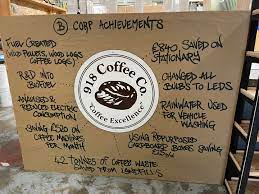 Ⓑ CORP ACHIEVEMENTS
FUEL CREATED
(WOOD PELLETS, WOOD LOGS
COFFEE LOGS)
R&D INTO
BIOFUEL
ANALYSED &
REDUCED ELECTRIC
CONSUMPTION
SAVING £520 ON
COFFEE MACHINES
PER MONTH
918 Coffee Co.
"Coffee Excellence"
£840 SAVED ON
STATIONARY
CHANGED ALL
BULBS TO LEDS
RAINWATER USED
FOR VEHICLE
WASHING
USING REPURPOSED
CARDBOARD BOXES SAVING
42 TONNES OF COFFEE WASTE
SAVED FROM LANDFILLS